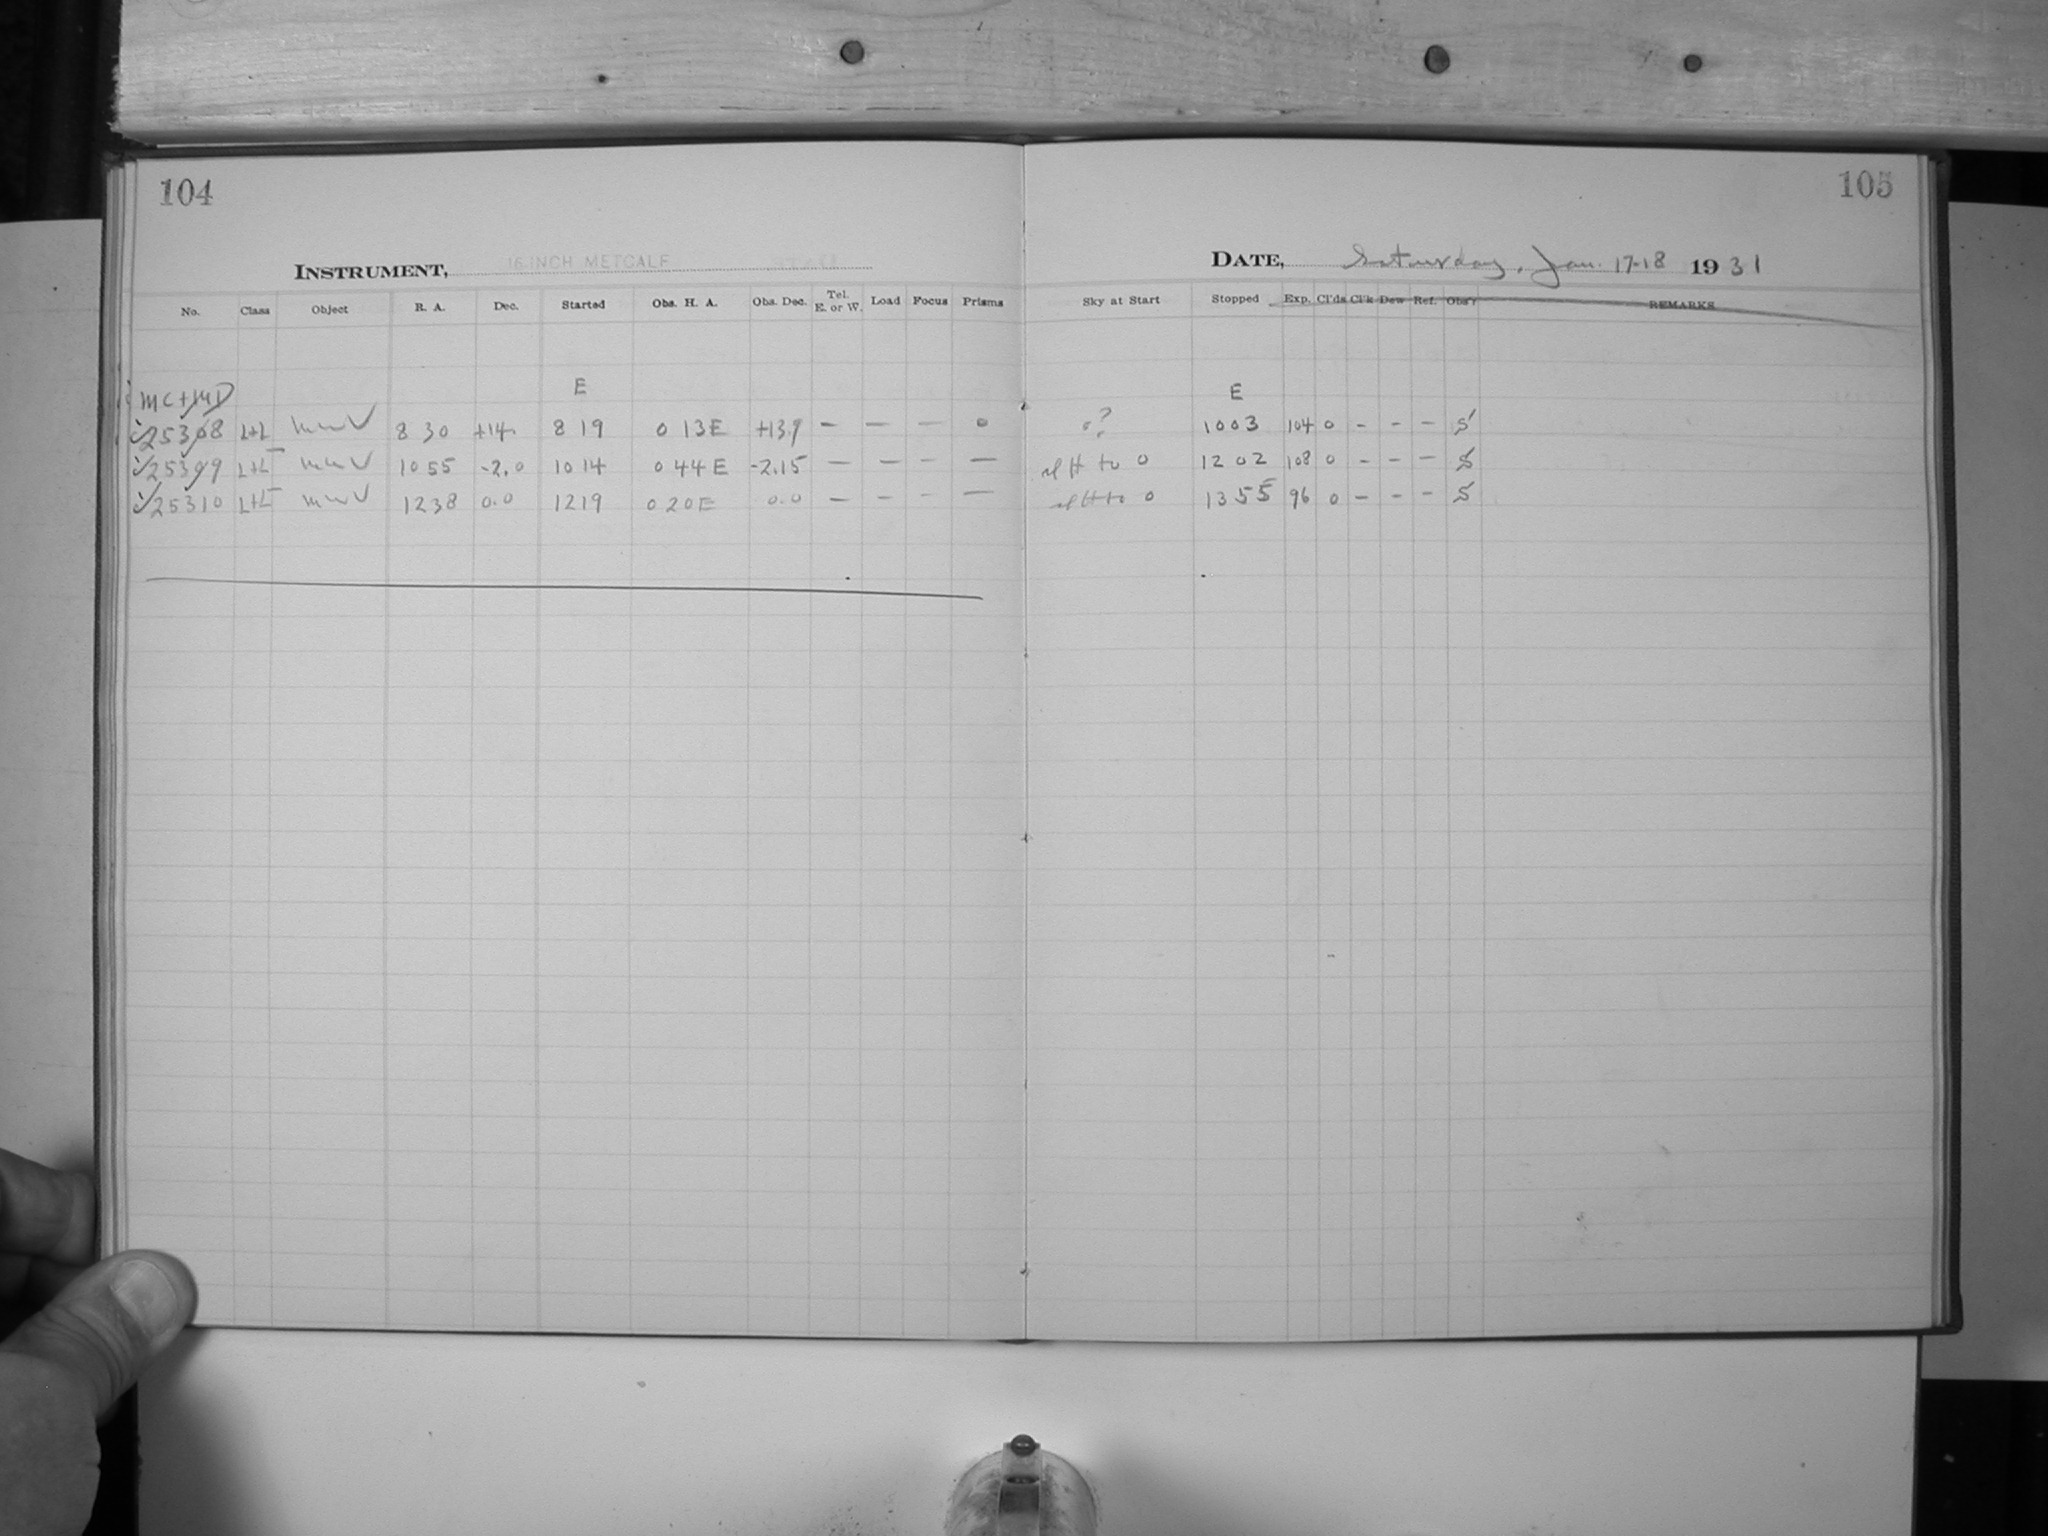 104
105
INSTRUMENT, 16 INCH METCALF
DATE, Saturday, Jan. 17-18 1931
No. Class Object R. A. Dec. Started Obs. H. A. Obs. Dec. Tel. E. or W. Load Focus Prisms Sky at Start Stopped Exp. Cl'ds Cl'k Dew Ref. Obs'r REMARKS
MC+MD E E
25308 L+L 8 30 +14. 8 19 0 13E +13.9 — — — 0 0? 1003 104 0 - - - S
25309 L+L 10 55 -2.0 10 14 0 44 E -2.15 — — — — to 0 1202 108 0 - - - S
25310 L+L 1238 0.0 1219 0 20E 0.0 — — — — to 0 1355 96 0 - - - S